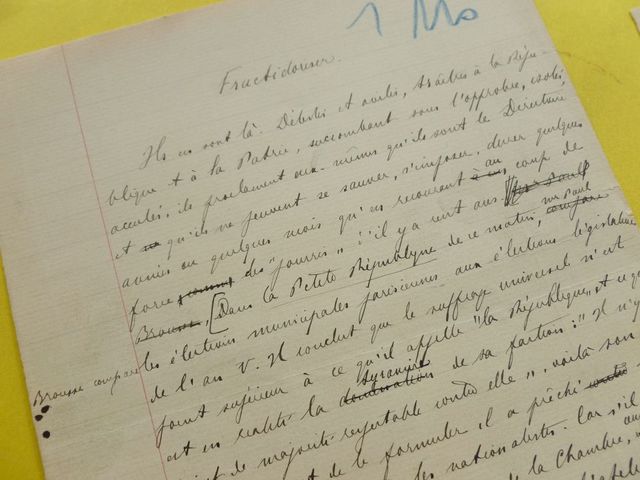 1 Mo
Fructidoriser.
Ils en sont là. Détestés et avilis, traîtres à la Répu-
blique et à la Patrie, succombant sous l'opprobre, isolés,
acculés, ils proclament eux-mêmes qu'ils sont le Directoire,
et qu'ils ne peuvent se sauver, s'imposer, durer quelques
années ou quelques mois qu'en recourant à un coup de
force des "pourris" d'il y a cent ans.
Brousse, [Dans la Petite République de ce matin, Mr Paul
Brousse compare les élections municipales parisiennes aux élections législatives
de l'an V. Il conclut que le suffrage universel n'est
point supérieur à ce qu'il appelle "la République", et ce qui
est en réalité la tyrannie domination de sa faction: "Il n'y
de majorité respectable contre elle", voilà son
de le formuler il a prêché
les nationalistes. Car s'il
de la Chambre,